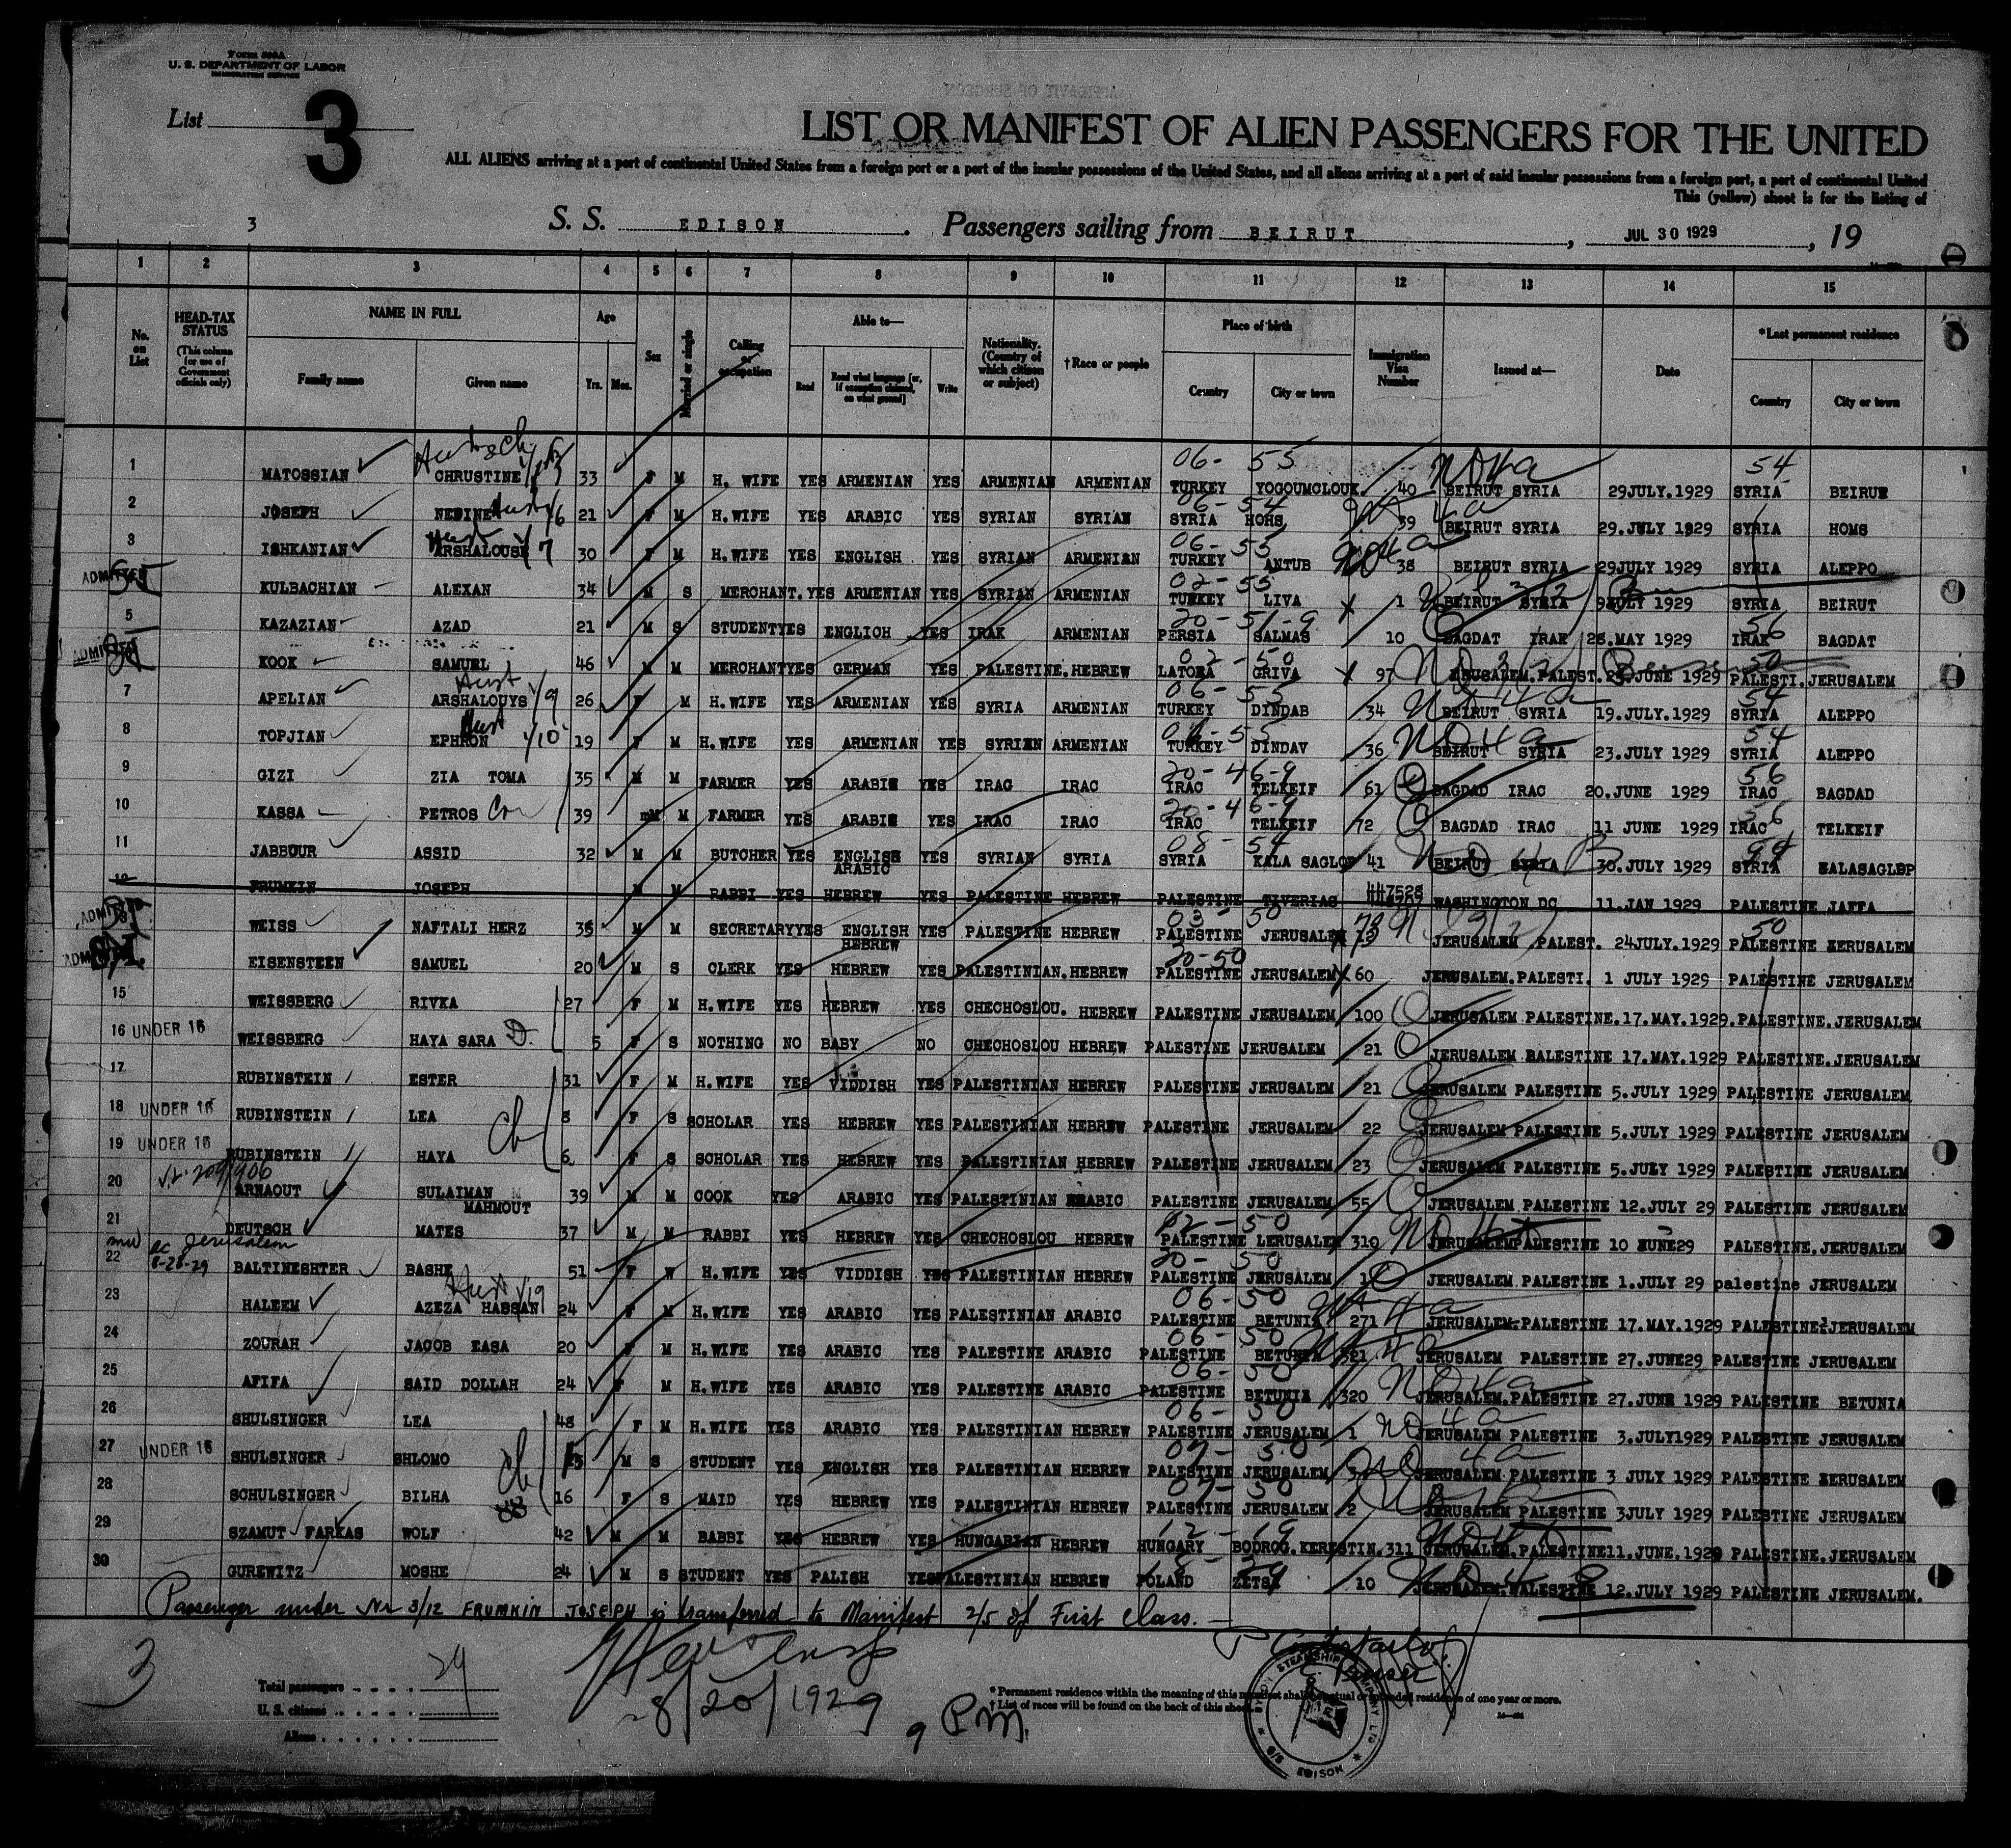 Form 500A
U. S. DEPARTMENT OF LABOR
IMMIGRATION SERVICE
List 3
LIST OR MANIFEST OF ALIEN PASSENGERS FOR THE UNITED
ALL ALIENS arriving at a port of continental United States from a foreign port or a port of the insular possessions of the United States, and all aliens arriving at a port of said insular possessions from a foreign port, a port of continental United
This (yellow) sheet is for the listing of
3 S. S. EDISON. Passengers sailing from BEIRUT, JUL 30 1929, 19
1 2 3 4 5 6 7 8 9 10 11 12 13 14 15
No. on List
HEAD-TAX STATUS
(This column for use of Government officials only)
NAME IN FULL
Family name Given name
Age
Yrs. Mos.
Sex
Married or single
Calling or occupation
Able to—
Read Read what language [or, if exemption claimed, on what ground] Write
Nationality. (Country of which citizen or subject)
†Race or people
Place of birth
Country City or town
Immigration Visa Number
Issued at—
Date
*Last permanent residence
Country City or town
1 MATOSSIAN CHRUSTINE 33 F M H. WIFE YES ARMENIAN YES ARMENIAN ARMENIAN 06- 55 TURKEY YOGOUMGLOUK 40 BEIRUT SYRIA 29JULY.1929 54 SYRIA BEIRUT
2 JOSEPH NEDINE 21 F M H.WIFE YES ARABIC YES SYRIAN SYRIAN 06-54 SYRIA HOHS 39 BEIRUT SYRIA 29.JULY 1929 SYRIA HOMS
3 ISHKANIAN ARSHALOUSE 30 F M H.WIFE YES ENGLISH YES SYRIAN ARMENIAN 06-55 TURKEY ANTUB 38 BEIRUT SYRIA 29JULY 1929 SYRIA ALEPPO
ADMITTED KULBACHIAN ALEXAN 34 M S MERCHANT. YES ARMENIAN YES SYRIAN ARMENIAN 02-55 TURKEY LIVA 1 BEIRUT SYRIA 9JULY 1929 SYRIA BEIRUT
5 KAZAZIAN AZAD 21 M S STUDENT YES ENGLICH YES IRAK ARMENIAN 20-51-9 PERSIA SALMAS 10 BAGDAT IRAK 28.MAY 1929 56 IRAK BAGDAT
ADMITTED KOOK SAMUEL 46 M M MERCHANT YES GERMAN YES PALESTINE. HEBREW 02-50 LATORA GRIVA 97 JERUSALEM.PALEST. JUNE 1929 50 PALESTI. JERUSALEM
7 APELIAN ARSHALOUYS 26 F M H. WIFE YES ARMENIAN YES SYRIA ARMENIAN 06-55 TURKEY DINDAB 34 BEIRUT SYRIA 19.JULY.1929 54 SYRIA ALEPPO
8 TOPJIAN EPHRON 19 F M H.WIFE YES ARMENIAN YES SYRIAN ARMENIAN TURKEY DINDAV 36 BEIRUT SYRIA 23.JULY 1929 54 SYRIA ALEPPO
9 GIZI ZIA TOMA 35 M M FARMER YES ARABIC YES IRAG IRAC 20-46-9 IRAC TELKEIF 61 BAGDAD IRAC 20.JUNE 1929 56 IRAC BAGDAD
10 KASSA PETROS 39 M M FARMER YES ARABIC YES IRAC IRAC 20-46-9 IRAC TELKEIF 72 BAGDAD IRAC 11 JUNE 1929 56 IRAC TELKEIF
11 JABBOUR ASSID 32 M M BUTCHER YES ENGLISH ARABIC YES SYRIAN SYRIA 08-54 SYRIA KALA SAGLOP 41 BEIRUT SYRIA 30.JULY 1929 SYRIA
12 FRUMKIN JOSEPH M M RABBI YES HEBREW YES PALESTINE HEBREW PALESTINE TIVERIAS 447528 WASHINGTON DC 11.JAN 1929 PALESTINE JAFFA
ADMITTED WEISS NAFTALI HERZ 35 M M SECRETARY YES ENGLISH HEBREW YES PALESTINE HEBREW 03-50 PALESTINE JERUSALEM JERUSALEM PALEST. 24JULY.1929 50 PALESTINE JERUSALEM
EISENSTEEN SAMUEL 20 M S CLERK YES HEBREW YES PALESTINIAN. HEBREW 20-50 PALESTINE JERUSALEM 60 JERUSALEM.PALESTI. 1 JULY 1929 PALESTINE JERUSALEM
15 WEISSBERG RIVKA 27 F M H.WIFE YES HEBREW YES CHECHOSLOU. HEBREW PALESTINE JERUSALEM 100 JERUSALEM PALESTINE.17.MAY.1929.PALESTINE.JERUSALEM
16 UNDER 16 WEISSBERG HAYA SARA D. 5 F S NOTHING NO BABY NO CHECHOSLOU HEBREW PALESTINE JERUSALEM 21 JERUSALEM PALESTINE 17.MAY.1929 PALESTINE.JERUSALEM
17 RUBINSTEIN ESTER 31 F M H.WIFE YES VIDDISH YES PALESTINIAN HEBREW PALESTINE JERUSALEM 21 JERUSALEM PALESTINE 5.JULY 1929 PALESTINE JERUSALEM
18 UNDER 16 RUBINSTEIN LEA 8 F S SCHOLAR YES HEBREW YES PALESTINIAN HEBREW PALESTINE JERUSALEM 22 JERUSALEM PALESTINE 5.JULY 1929 PALESTINE JERUSALEM
19 UNDER 16 RUBINSTEIN HAYA 6 F S SCHOLAR YES HEBREW YES PALESTINIAN HEBREW PALESTINE JERUSALEM 23 JERUSALEM PALESTINE 5.JULY 1929 PALESTINE JERUSALEM
20 ARNAOUT SULAIMAN MAHMOUT 39 M M COOK YES ARABIC YES PALESTINIAN ARABIC PALESTINE JERUSALEM 55 JERUSALEM PALESTINE 12.JULY 29 PALESTINE JERUSALEM
21 DEUTSCH MATES 37 M M RABBI YES HEBREW YES CHECHOSLOU HEBREW 02-50 PALESTINE LERUSALEM 310 JERUSALEM PALESTINE 10 JUNE29 PALESTINE.JERUSALEM
Jerusalem
22 8-28-29 BALTINESHTER BASHE 51 F W H.WIFE YES VIDDISH YES PALESTINIAN HEBREW 20-50 PALESTINE JERUSALEM JERUSALEM PALESTINE 1.JULY 29 palestine JERUSALEM
23 HALEEM AZEZA HASSAN 24 F M H.WIFE YES ARABIC YES PALESTINIAN ARABIC 06-50 PALESTINE BETUNIA 271 JERUSALEM-PALESTINE 17.MAY.1929 PALESTINE JERUSALEM
24 ZOURAH JACOB EASA 20 F M H.WIFE YES ARABIC YES PALESTINE ARABIC 06-50 PALESTINE BETUNIA 321 JERUSALEM PALESTINE 27.JUNE29 PALESTINE JERUSALEM
25 AFIFA SAID DOLLAH 24 F M H.WIFE YES ARABIC YES PALESTINE ARABIC 06-50 PALESTINE BETUNIA 320 JERUSALEM.PALESTINE 27.JUNE 1929 PALESTINE BETUNIA
26 SHULSINGER LEA 48 F M H.WIFE YES ARABIC YES PALESTINIAN HEBREW 06-50 PALESTINE JERUSALEM 1 JERUSALEM PALESTINE 3.JULY1929 PALESTINE JERUSALEM
27 UNDER 16 SHULSINGER SHLOMO 15 M S STUDENT YES ENGLISH YES PALESTINIAN HEBREW 07-50 PALESTINE JERUSALEM 3 JERUSALEM PALESTINE 3 JULY 1929 PALESTINE JERUSALEM
28 SCHULSINGER BILHA 16 F S MAID YES HEBREW YES PALESTINIAN HEBREW 07-50 PALESTINE JERUSALEM 2 JERUSALEM PALESTINE 3JULY 1929 PALESTINE JERUSALEM
29 SZAMUT FARKAS WOLF 42 M M BABBI YES HEBREW YES HUNGARIAN HEBREW 12-19 HUNGARY BODROG.KERESTIN.311 JERUSALEM.PALESTINE11.JUNE.1929 PALESTINE.JERUSALEM
30 GUREWITZ MOSHE 24 M S STUDENT YES PALISH YES PALESTINIAN HEBREW POLAND 10 JERUSALEM.PALESTINE 12.JULY 1929 PALESTINE JERUSALEM.
Passenger under Nr 3/12 FRUMKIN JOSEPH is transferred to Manifest 2/5 of First class.—
3
Total passengers 29
U. S. citizens
Aliens
8/20/1929
9 P.M.
* Permanent residence within the meaning of this manifest shall be actual or intended residence of one year or more.
† List of races will be found on the back of this sheet.
STEAMSHIP COMPANY LTD
S/S EDISON